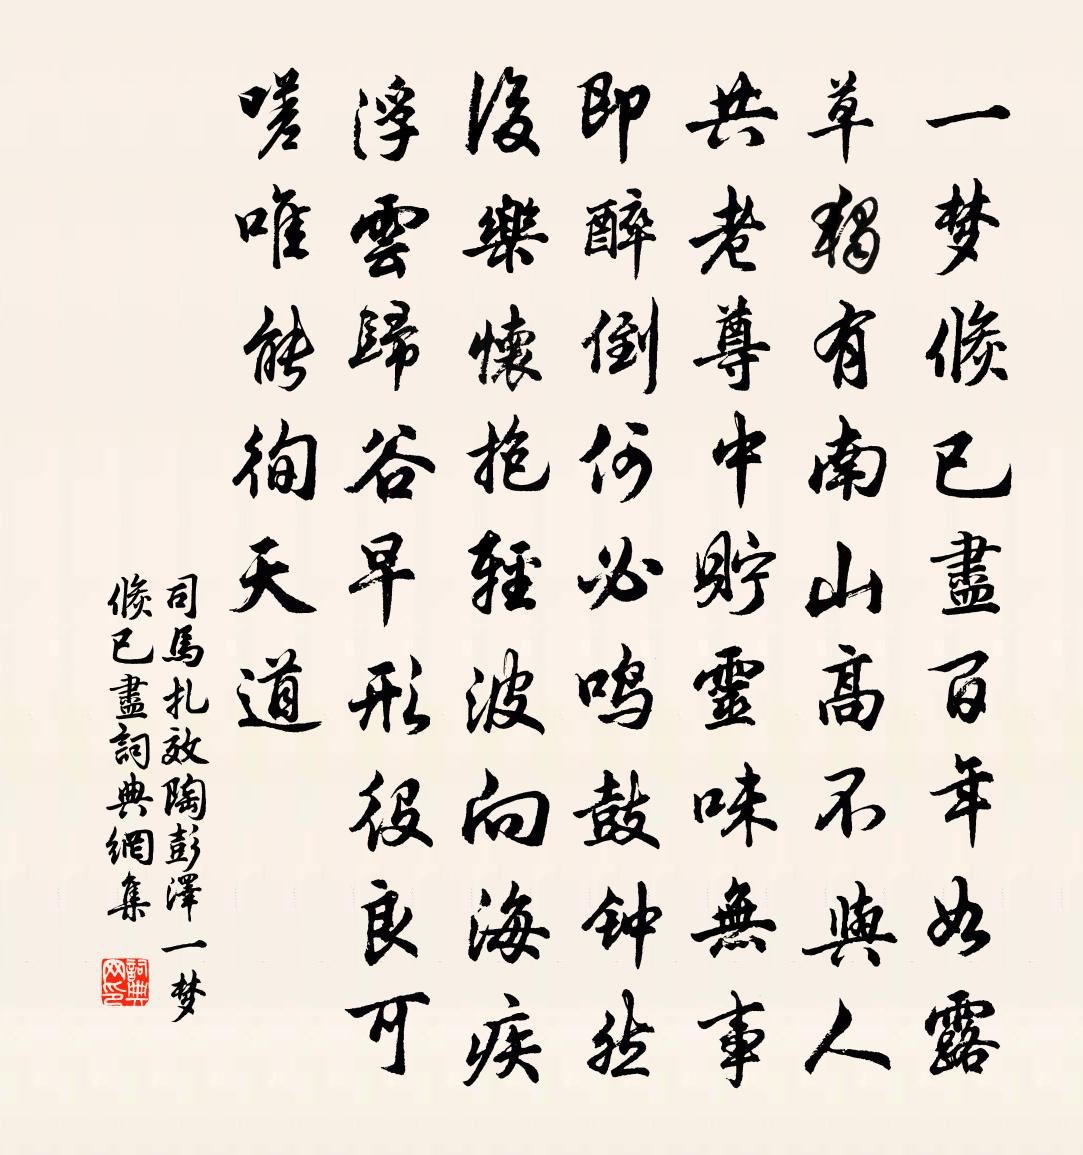 一梦倐已盡百年如露
草獨有南山高不與人
共老尊中貯靈味無事
即醉倒何必鸣鼓钟然
後樂懷抱輕波向海疾
浮雲歸谷早形役良可
嗟唯能徇天道
司馬扎效陶彭澤一梦
倐已盡詞典網集
詞典
网印